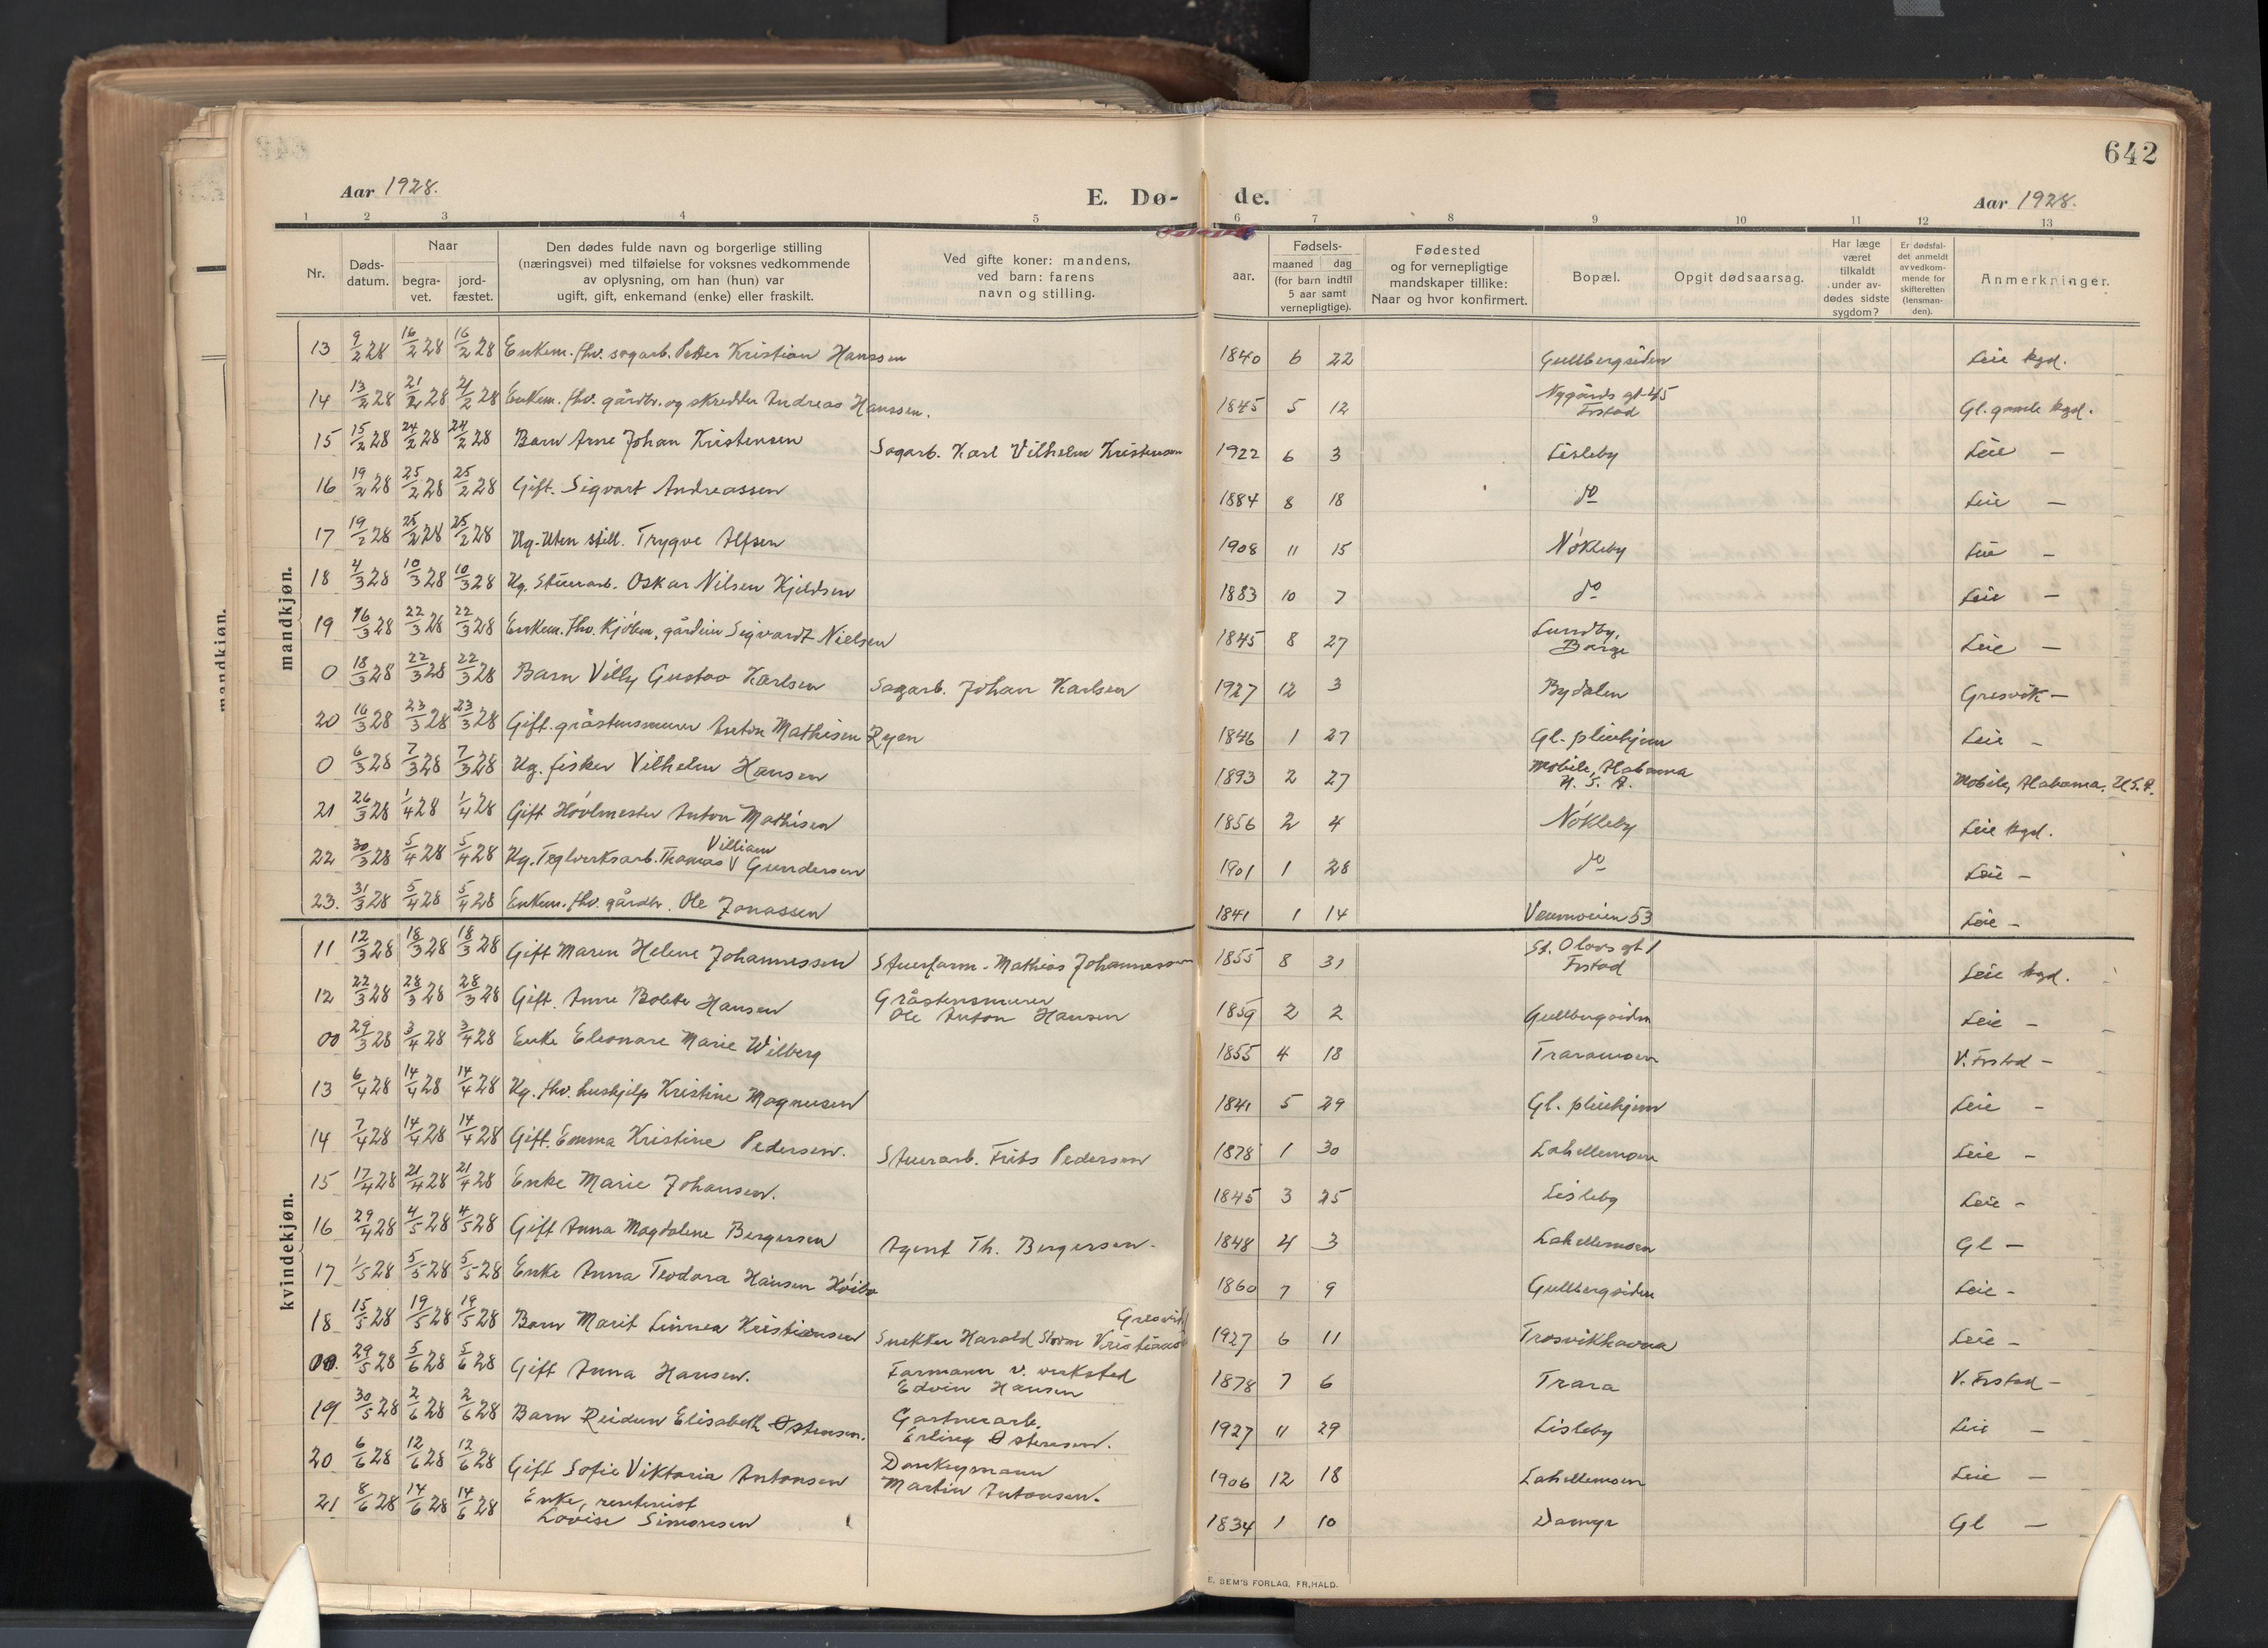 642
Aar 1928. E. Dø- de. Aar 1928.
1 2 3 4 5 6 7 8 9 10 11 12 13
Nr.
Døds-
datum.
Naar
begra-
vet.
jord-
fæstet.
Den dødes fulde navn og borgerlige stilling
(næringsvei) med tilføielse for voksnes vedkommende
av oplysning, om han (hun) var
ugift, gift, enkemand (enke) eller fraskilt.
Ved gifte koner: mandens,
ved barn: farens
navn og stilling.
Fødsels-
aar.
maaned dag
(for barn indtil
5 aar samt
vernepligtige).
Fødested
og for vernepligtige
mandskaper tillike:
Naar og hvor konfirmert.
Bopæl.
Opgit dødsaarsag.
Har læge
været
tilkaldt
under av-
dødes sidste
sygdom?
Er dødsfal-
det anmeldt
av vedkom-
mende for
skifteretten
(lensman-
den).
Anmerkninger.
mandkjøn.
mandkjøn.
13 9/2 28 16/2 28 16/2 28 Enkem. fhv. sagarb. Petter Kristian Hanssen 1840 6 22 Gullbergsiden Leie kgd.
14 13/2 28 21/2 28 21/2 28 Enkem. fhv. gårdbr. og skredder Andreas Hanssen. 1845 5 12 Nygårds gt. 45
Frstad Gl. gamle kgd.
15 15/2 28 24/2 28 24/2 28 Barn Arne Johan Kristensen Sagarb. Karl Vilhelm Kristensen 1922 6 3 Lisleby Leie —
16 19/2 28 25/2 28 25/2 28 Gift. Sigvart Andreassen 1884 8 18 do Leie —
17 19/2 28 25/2 28 25/2 28 Ug. Uten still. Trygve Alfsen 1908 11 15 Nøkleby Leie —
18 4/3 28 10/3 28 10/3 28 Ug. Stuerarb. Oskar Nilsen Kjeldsen 1883 10 7 do Leie —
19 16/3 28 22/3 28 22/3 28 Enkem. fhv. Kjøbm., gårdeier Sigvardt Nielsen 1845 8 27 Lundby,
Borge Leie —
0 18/3 28 22/3 28 22/3 28 Barn Villy Gustav Karlsen Sagarb. Johan Karlsen 1927 12 3 Bydalen Gresvik —
20 16/3 28 23/3 28 23/3 28 Gift. gråstensmurer Anton Mathisen Ryen 1846 1 27 Gl. pleiehjem Leie -
0 6/3 28 7/3 28 7/3 28 Ug. fisker Vilhelm Hansen 1893 2 27 Mobile, Alabama
U. S. A. Mobile, Alabama. U.S.A.
21 26/3 28 1/4 28 1/4 28 Gift Høvlmester Anton Mathisen 1856 2 4 Nøkleby Leie kgd.
Villiam
22 30/3 28 5/4 28 5/4 28 Ug. Teglverksarb. Thomas V Gundersen 1901 1 28 do Leie -
23. 31/3 28 5/4 28 5/4 28 Enkem. fhv. gårdbr. Ole Jonassen 1841 1 14 Veumveien 53 Leie -
kvindekjøn.
11 12/3 28 18/3 28 18/3 28 Gift Maren Helene Johannessen Stuerform. Mathias Johannessen 1855 8 31 St. Olavs gt 1
Frstad Leie kgd.
12 22/3 28 28/3 28 28/3 28 Gift. Anne Bolette Hansen Gråstensmurer
Ole Anton Hansen 1859 2 2 Gullbergsiden Leie -
00 29/3 28 3/4 28 3/4 28 Enke Eleonare Marie Wilberg 1855 4 18 Traramoen V. Frstad -
13 6/4 28 14/4 28 14/4 28 Ug. fhv. hushjelp Kristine Magnusen 1841 5 29 Gl. pleiehjem Leie -
14 7/4 28 14/4 28 14/4 28 Gift. Emma Kristine Pedersen. Stuerarb. Frits Pedersen 1878 1 30 Lahellemoen Leie -
15 17/4 28 21/4 28 21/4 28 Enke Marie Johansen. 1845 3 25 Lisleby Leie -
16 29/4 28 4/5 28 4/5 28 Gift Anna Magdalene Bergersen Agent Th. Bergersen. 1848 4 3 Lahellemoen Gl —
17 1/5 28 5/5 28 5/5 28 Enke Anna Teodora Hansen Høibo 1860 7 9 Gullbergsiden Leie -
Gresvik
18 15/5 28 19/5 28 19/5 28 Barn Marit Linnea Kristiansen Snekker Harald Storm Kristiansen 1927 6 11 Trosvikhavna Leie -
00. 29/5 28 5/6 28 5/6 28 Gift Anna Hansen. Formann v. verksted
Edvin Hansen 1878 7 6 Trara V. Frstad -
19 30/5 28 2/6 28 2/6 28 Barn Reidun Elisabeth Østensen. Gartnerarb.
Erling Østensen. 1927 11 29 Lisleby Leie —
20 6/6 28 12/6 28 12/6 28 Gift Sofie Viktoria Antonsen Donkeymann
Martin Antonsen. 1906 12 18 Lahellemoen Leie —
21 8/6 28 14/6 28 14/6 28 Enke, rentenist
Lovise Simonsen 1834 1 10 Damyr Gl —
E. SEM'S FORLAG, FR.HALD.